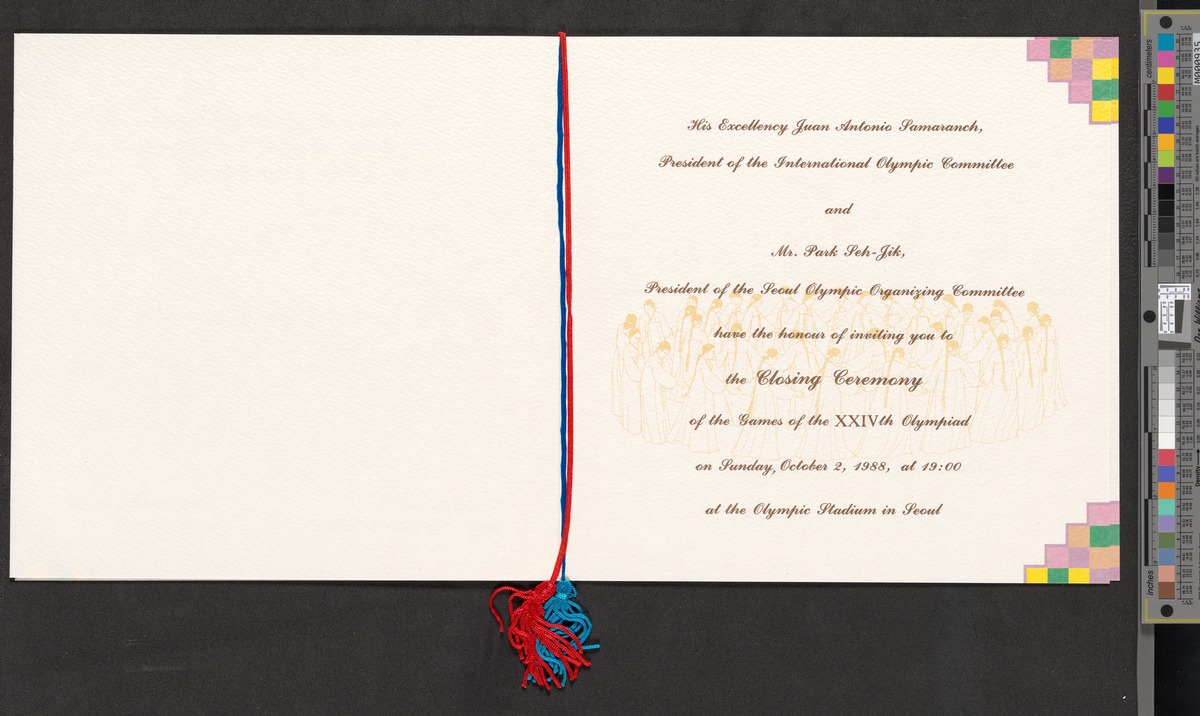 His Excellency Juan Antonio Samaranch,
President of the International Olympic Committee
and
Mr. Park Seh-Jik,
President of the Seoul Olympic Organizing Committee
have the honour of inviting you to
the Closing Ceremony
of the Games of the XXIVth Olympiad
on Sunday, October 2, 1988, at 19:00
at the Olympic Stadium in Seoul
centimeters
M000935
inches